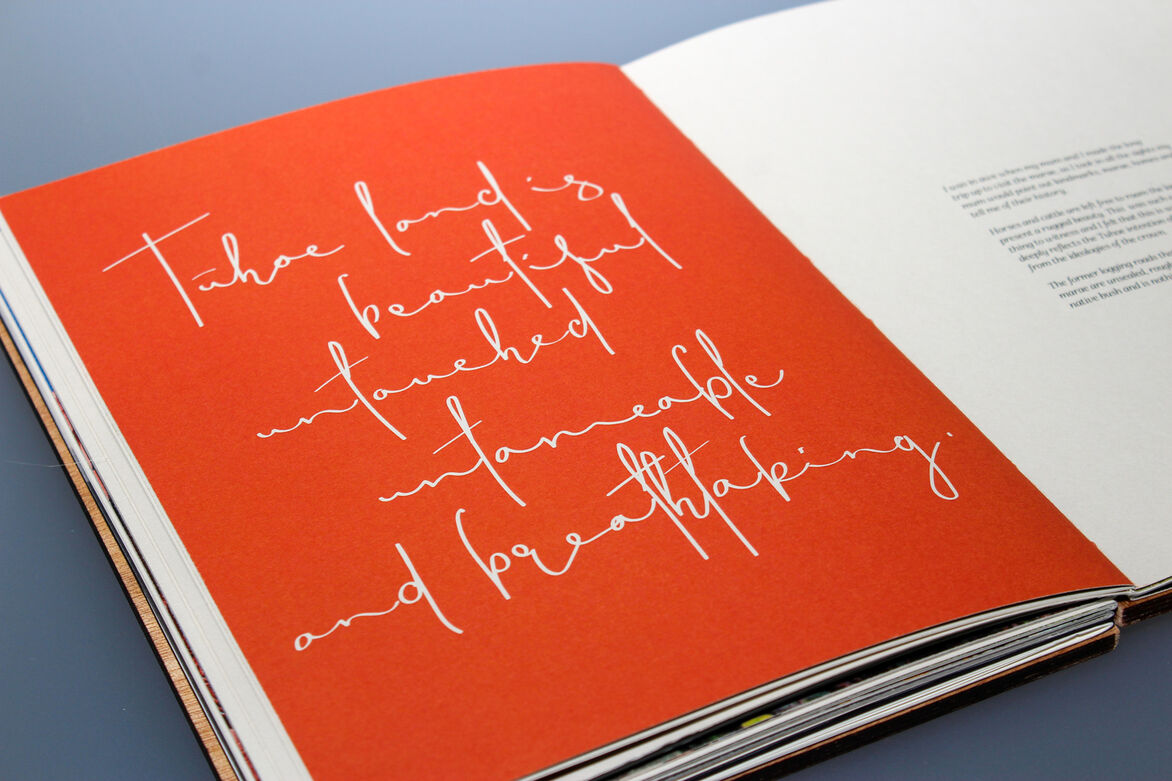 Tūhoe land is
beautiful
untouched
untameable
and breathtaking.
I was in awe when my mum and I made the long
trip up to visit the marae, as I took in all the sights my
mum would point out landmarks, marae, homes
tell me of their history.
Horses and cattle are left free to roam the
present a rugged beauty. This was such
thing to witness and I felt that this is
deeply reflects the Tūhoe intention
from the ideologies of the crown.
The former logging roads
marae are unsealed, rough
native bush and is